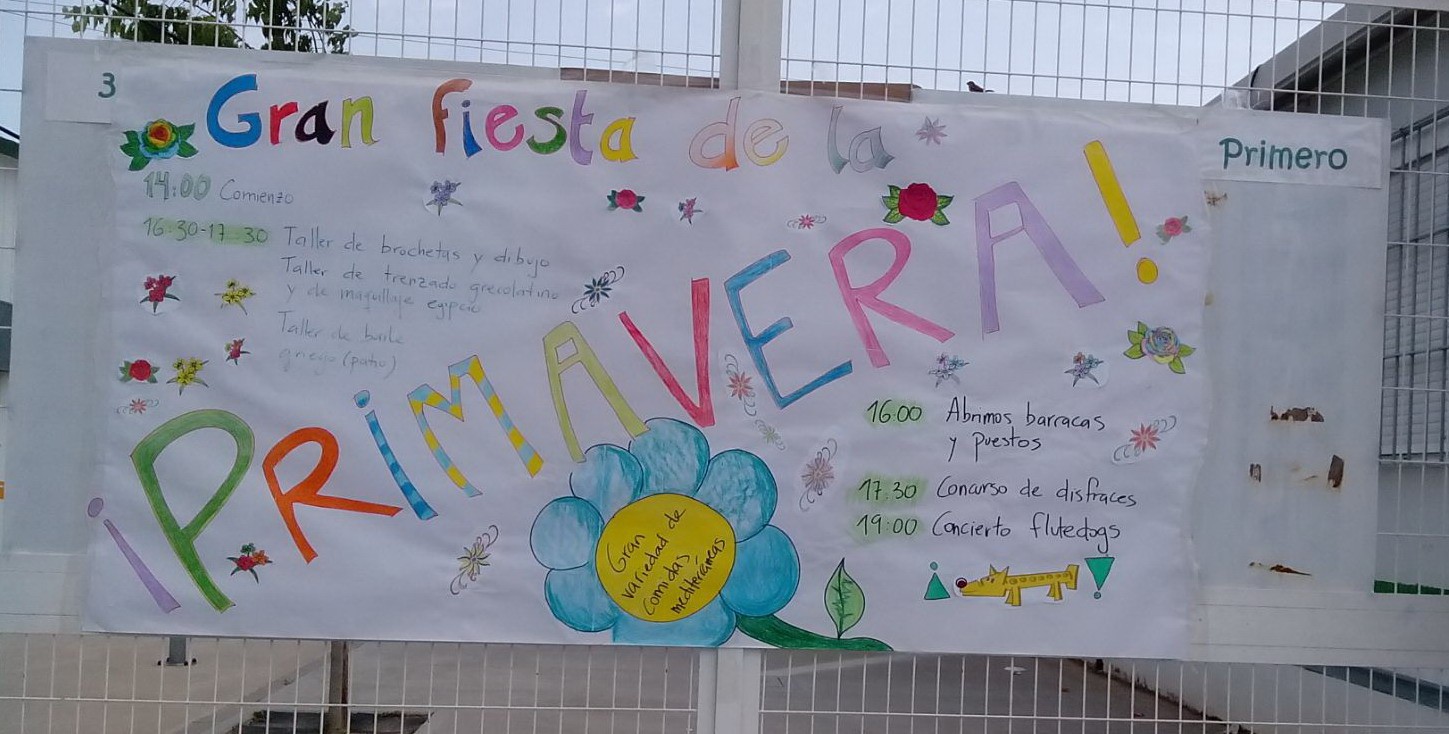 3
Primero
Gran fiesta de la
¡PRIMAVERA!
14:00 Comienzo
16:30-17:30 Taller de brochetas y dibujo
Taller de trenzado grecolatino
y de maquillaje egipcio
Taller de baile
griego (patio)
16:00 Abrimos barracas
y puestos
17:30 Concurso de disfraces
19:00 Concierto flutedogs
Gran
variedad de
comidas
mediteráneas